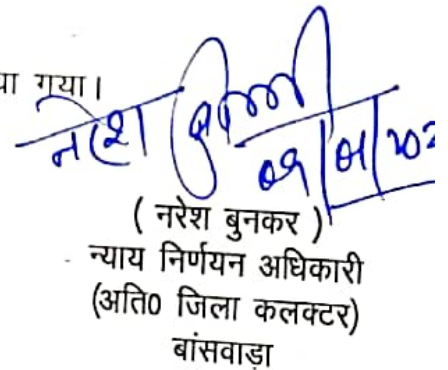 या गया।
नरेश
( नरेश बुनकर )
न्याय निर्णयन अधिकारी
(अति0 जिला कलक्टर)
बांसवाड़ा